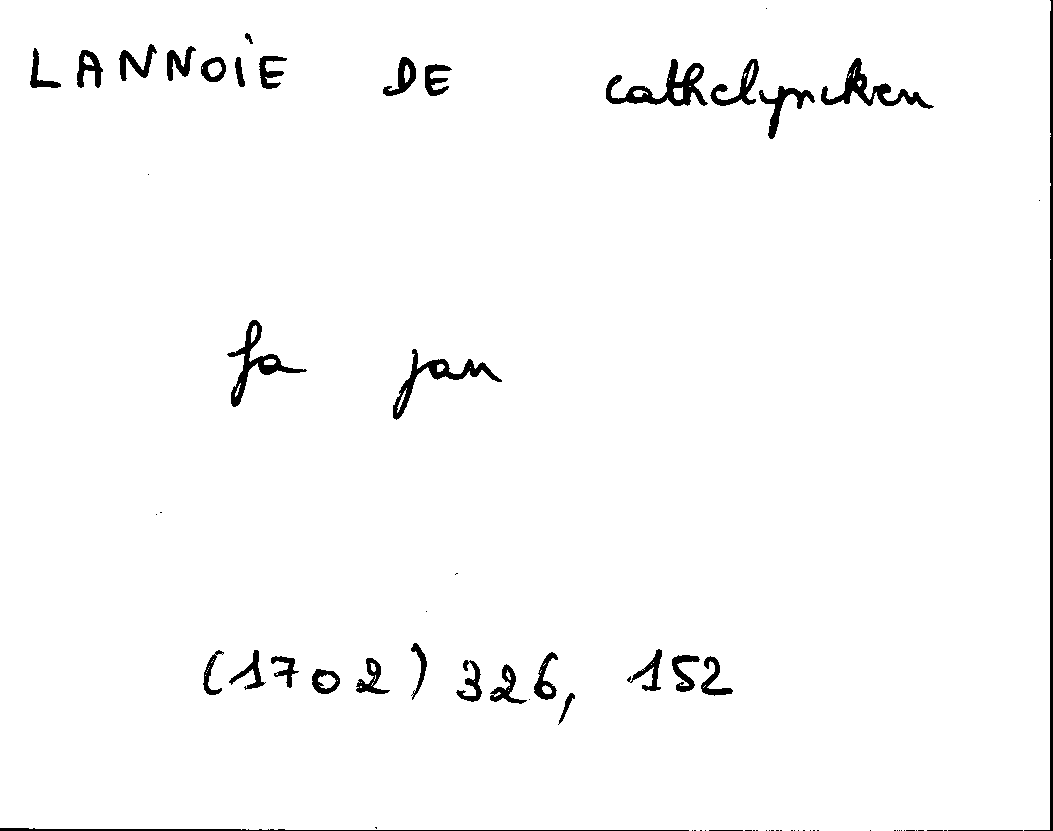 LANNOIE DE cathelyncken
fa jan
(1702) 326, 152